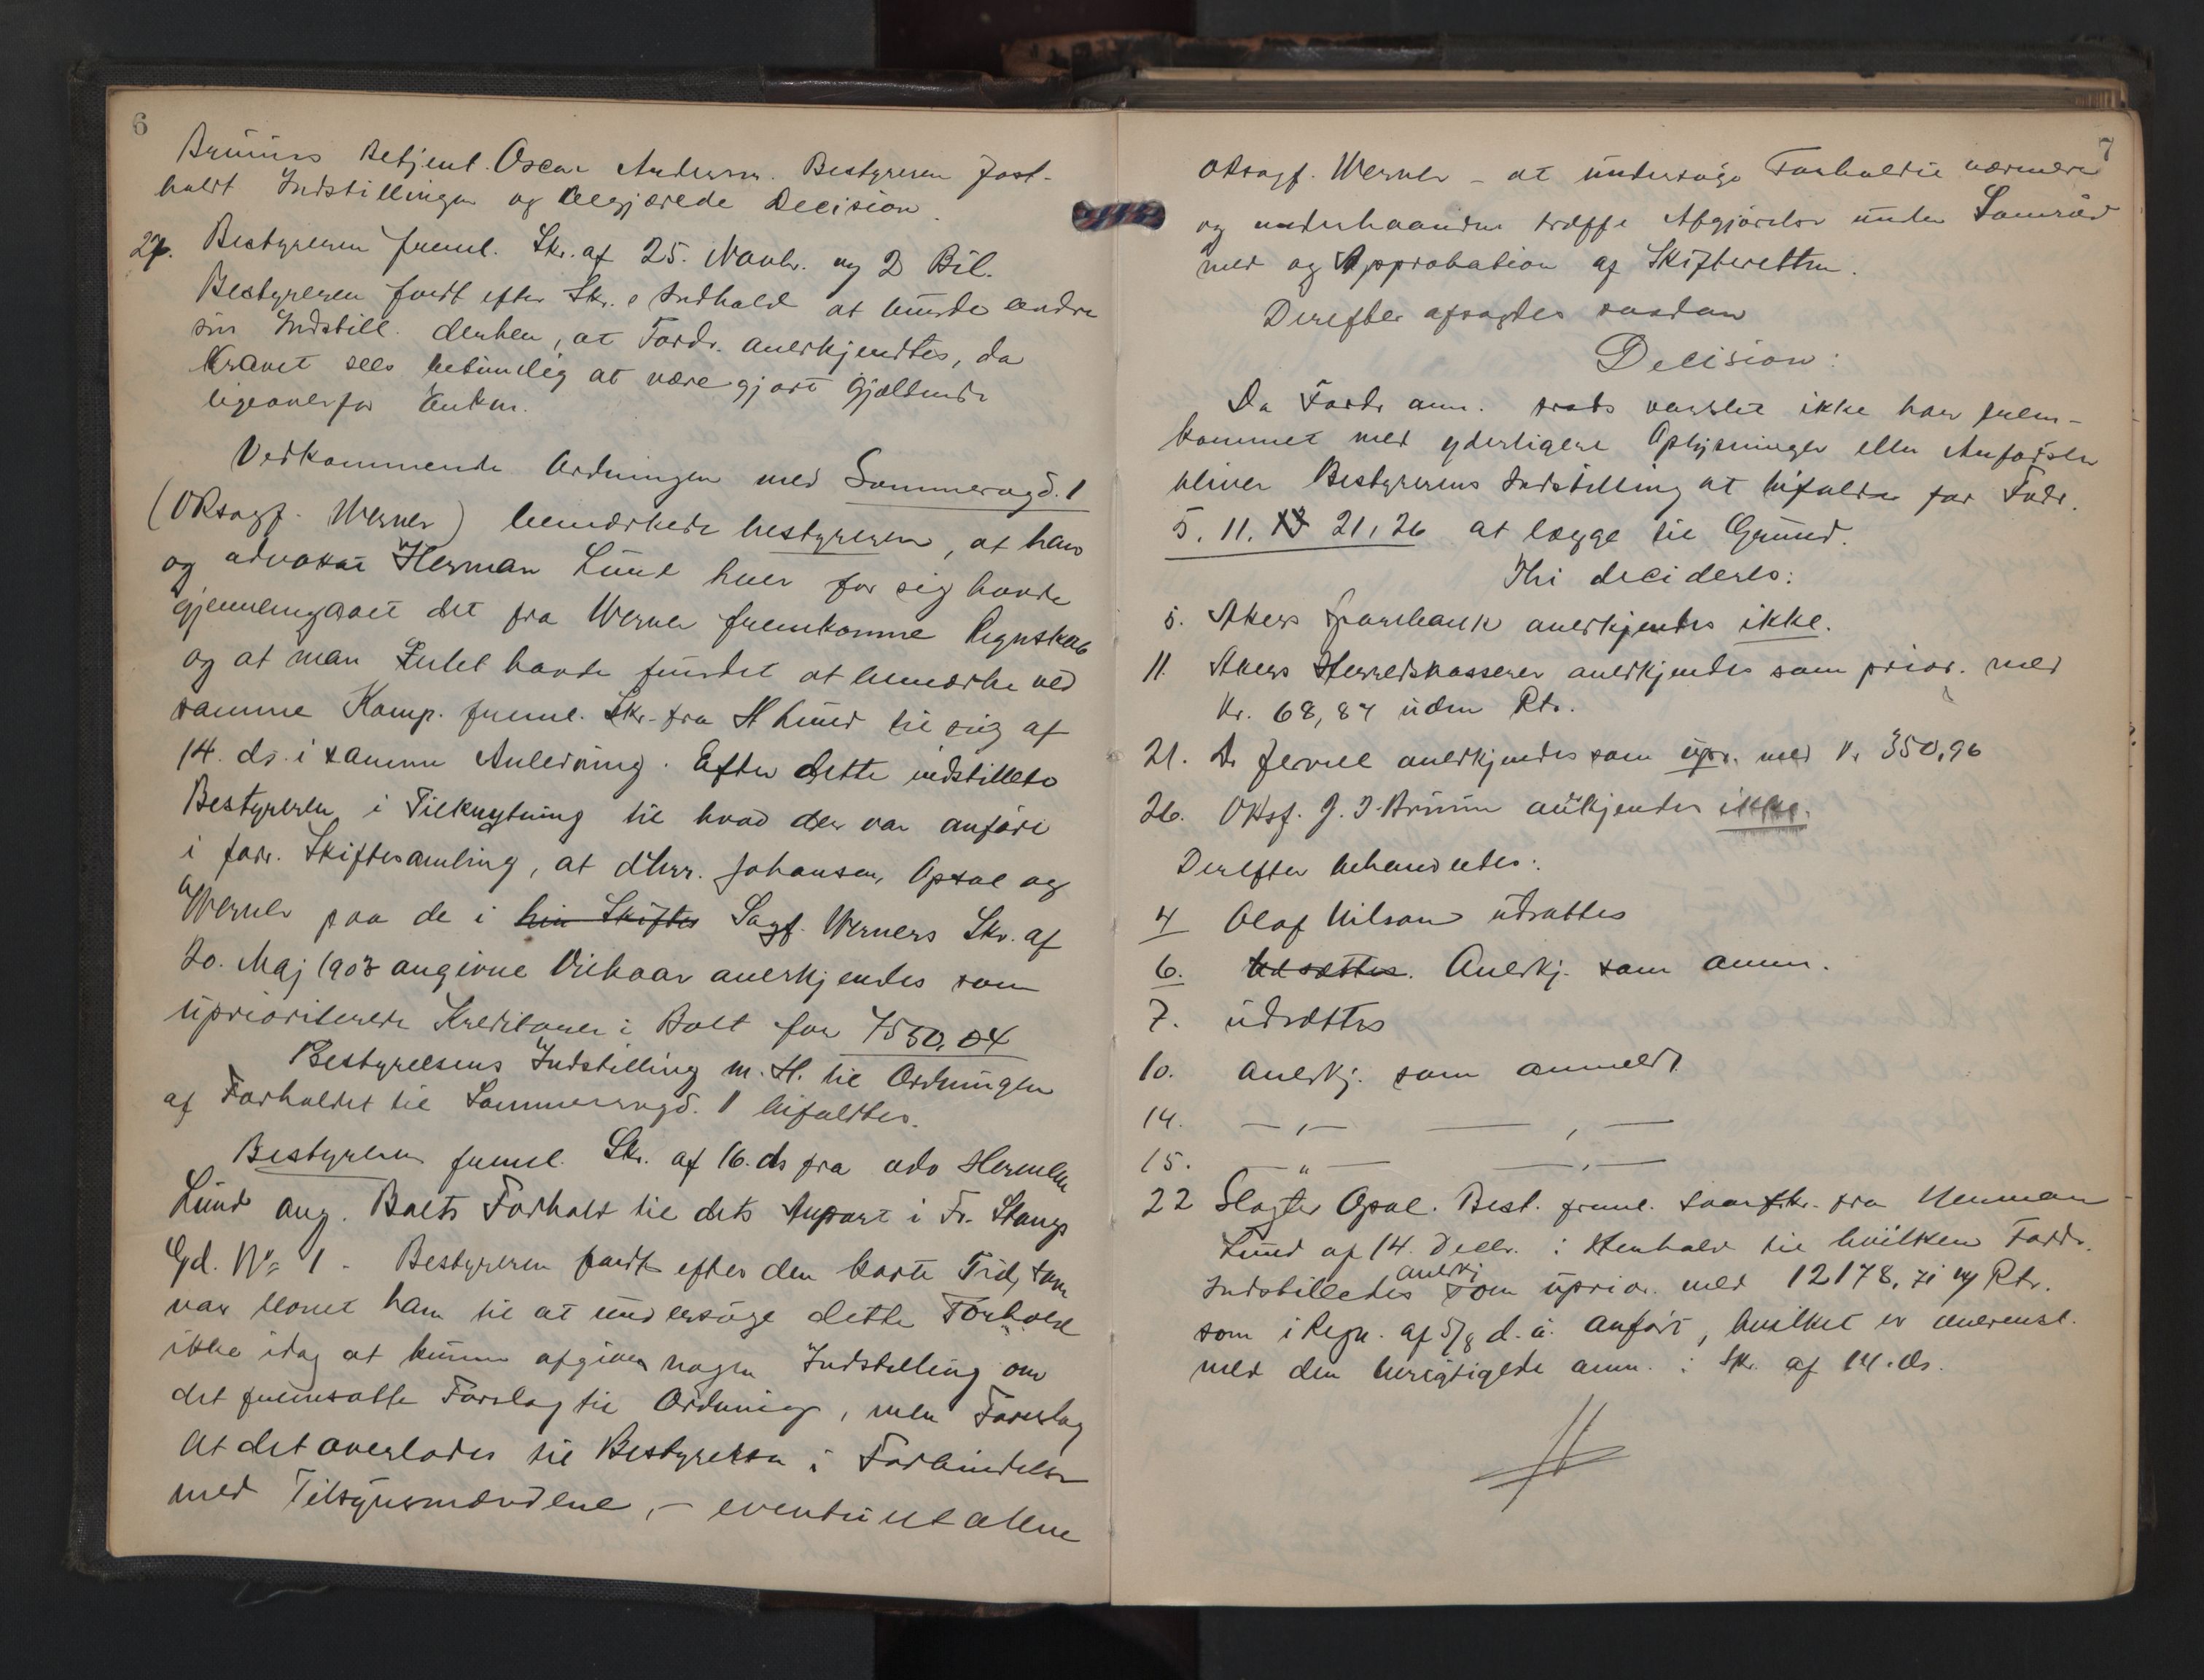 6
Brüuns Betjent. Oscar Andersen. Bestyreren fast-
holdt Indstillingen og begjærede Decision.
27. Bestyreren freml. Skr. af 25. Novbr. og 2 Bil.
Bestyreren fandt efter Skr.s Indhold at burde ændre
sin Indstill. derhen, at Fordr. anerkjendtes, da
Kravet sees betimelig at være gjort gjældende
ligeoverfor Enken.
Vedkommende Ordningen med Sommerogd. 1
(ORsagf. Werner) bemærkede bestyreren, at han
og advokat Herman Lund hver for sig havde
gjennemgaaet det fra Werner fremkomne Regnskab
og at man Intet havde fundet at bemærke ved
samme Komp. freml. Skr. fra H Lund til sig af
14. ds. i samme Anledning. Efter dette indstillede
Bestyreren i Tilknytning til hvad der var anført
i forr. Skiftesamling, at d'Hrr. Johansen, Opsal og
Werner paa de i hin Skiftes Sagf. Werners Skr. af
20. Maj 1903 angivne Vilkaar anerkjendes som
uprioriterede Kreditorer i Boet for 7550,04
Bestyrelsens Indstilling m. H. til Ordningen
af Forholdet til Sommerrogd. 1 bifaldtes.
Bestyreren freml. Skr. af 16. ds fra adv Herman
Lund ang. Boets Forhold til dets Anpart i Fr. Stangs
Gd. No 1 - Bestyreren fandt efter den korte Tid, som
var levnet ham til at undersøge dette Forhold
ikke idag at kunne afgive nogen Indstilling om
det fremsatte Forslag til Ordning, men Foreslog
at det overlodes til Bestyrelsen i Forbindelse
med Tilsynsmændene, - eventuelt alene
7
ORsagf. Werner - at undersøge Forholdet nærmere
og underhaanden træffe Afgjørelse under Samraad
med og Approbation af Skifteretten.
Derefter afsagdes saadan
Decision:
Da Fordr anm. trods varslet ikke har frem-
kommet med yderligere Oplysninger eller Anførsler
bliver Bestyrerens Indstilling at bifalde for Fodr.
5. 11. 13 21, 26 at lægge til Grund.
Thi decideres:
5. Akers Sparebank anerkjendes ikke.
11. Akers Herredskasserer anerkjendes som prior. med
Kr. 68,84 uden Rtr.
21. Dr Jervel anerkjendes som upr. med Kr 350,96
26. ORsf. J. J. Brüun ankjendes ikke.
Derefter behandledes:
4 Olaf Nilson udsattes
6. Udsættes. Anerkj. som anm.
7. udsættes
10. anerkj. som anmeldt
14. — „ — — „ —
15. — „ — — „ —
22 Slagter Opsal. Best. freml. Skr. fra Herman
Lund af 14. Decbr. i Henhold til hvilken Fordr.
Indstilledes anerkj som uprior. med 12178,71 og Rtr.
som i Regn. af 5/8 d. å. anført, hvilket er overensst.
med den berigtigede anm. i Skr. af 14. ds.